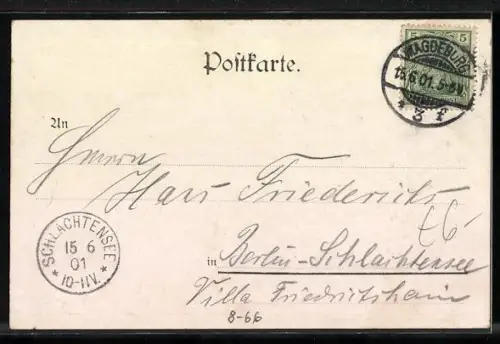 5 5
MAGDEBURG
15.6.01.5-6V.
* 3 f
Postkarte.
An
Herrn
Hans Friederichs
in Berlin-Schlachtensee
Villa Friedrichshain
SCHLACHTENSEE
15 6
01
* 10-11V. *
8-66